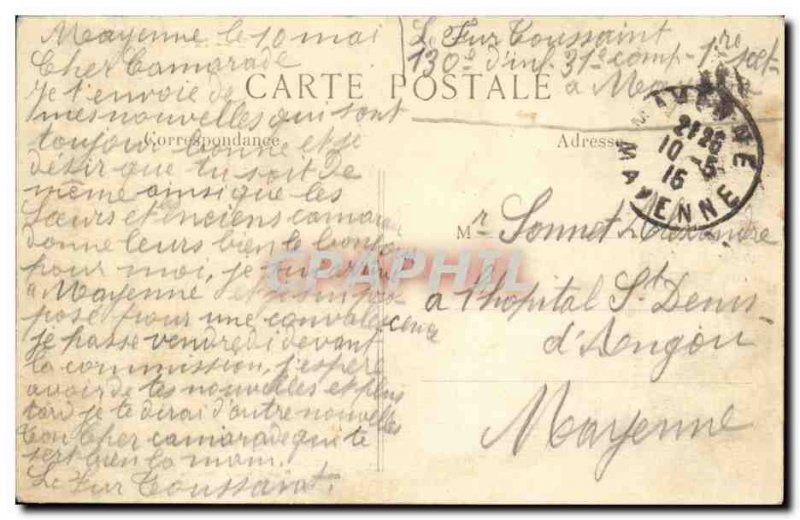 Mayenne le 10 mai
Cher Camarade
Je t'envoie de
mes nouvelles qui sont
toujour bonne et se
désir que tu soit de
même ainsi que les
Sœurs et enciens camara
donne leurs bien le bonj
pour moi, je
a Mayenne et je suis pro
posé pour une convalescence
je passe vendredi devant
la commission, j'espère
avoir de tes nouvelles et plus
tard je te dirai d'autre nouvelles
Ton Cher camarade qui te
sert bien la main.
Le Fur Toussaint
Le Fur Toussaint
130e d'inf. 31e comp. 1re sect
a Mayenne
CARTE POSTALE
Correspondance
Adresse
MAYENNE
21 26
10 -5
16
MAYENNE
Mr Sonnet Alexandre
a l'hopital St Denis
d'Anjou
Mayenne
CPAPHIL